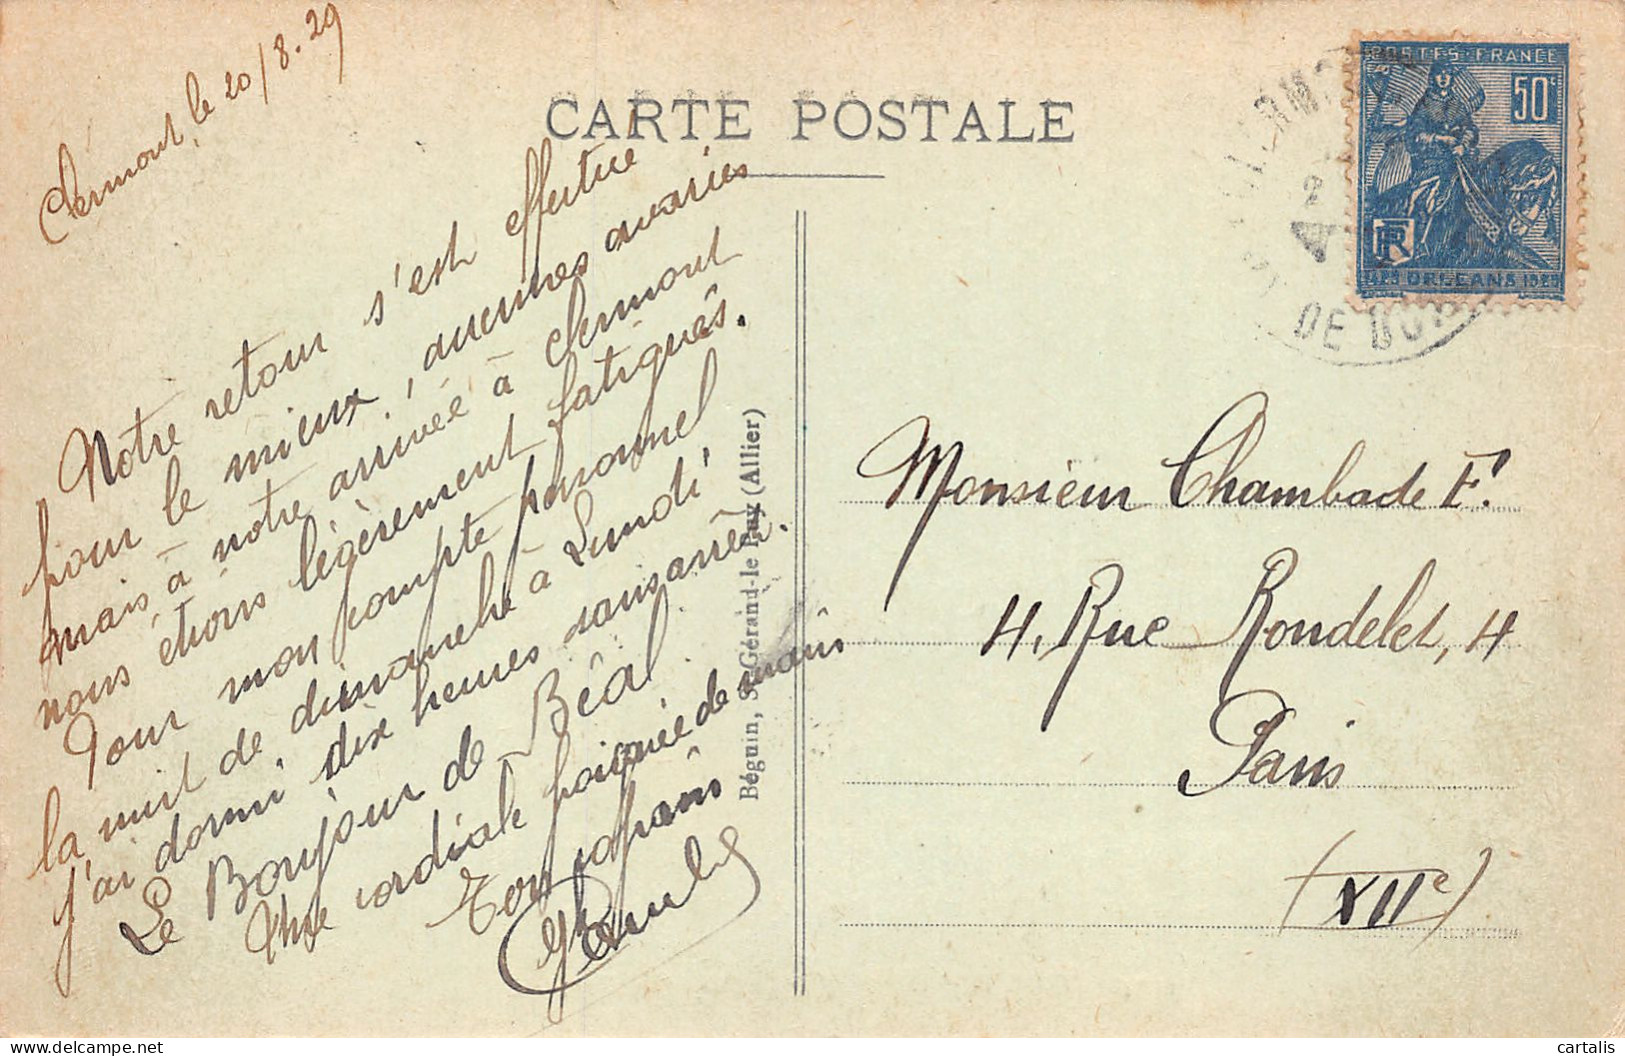 Clermont, le 20/8.29
CARTE POSTALE
POSTES-FRANCE
50c
RF
ORLEANS
DE DO
Notre retour s'est effectué
pour le mieux, aucunes avaries
mais à notre arrivée à Clermont
nous étions légèrement fatigués.
Pour mon compte personnel
la nuit de dimanche à Lundi
j'ai dormi dix heures sans arrêt.
Le Bonjour de Béal
Une cordiale poignée de mains
Ton copain
Béguin, St-Gérand-le-Puy (Allier)
Monsieur Chambade E.
4, Rue Rondelet, 4
Paris
(XIIe)
cartalis